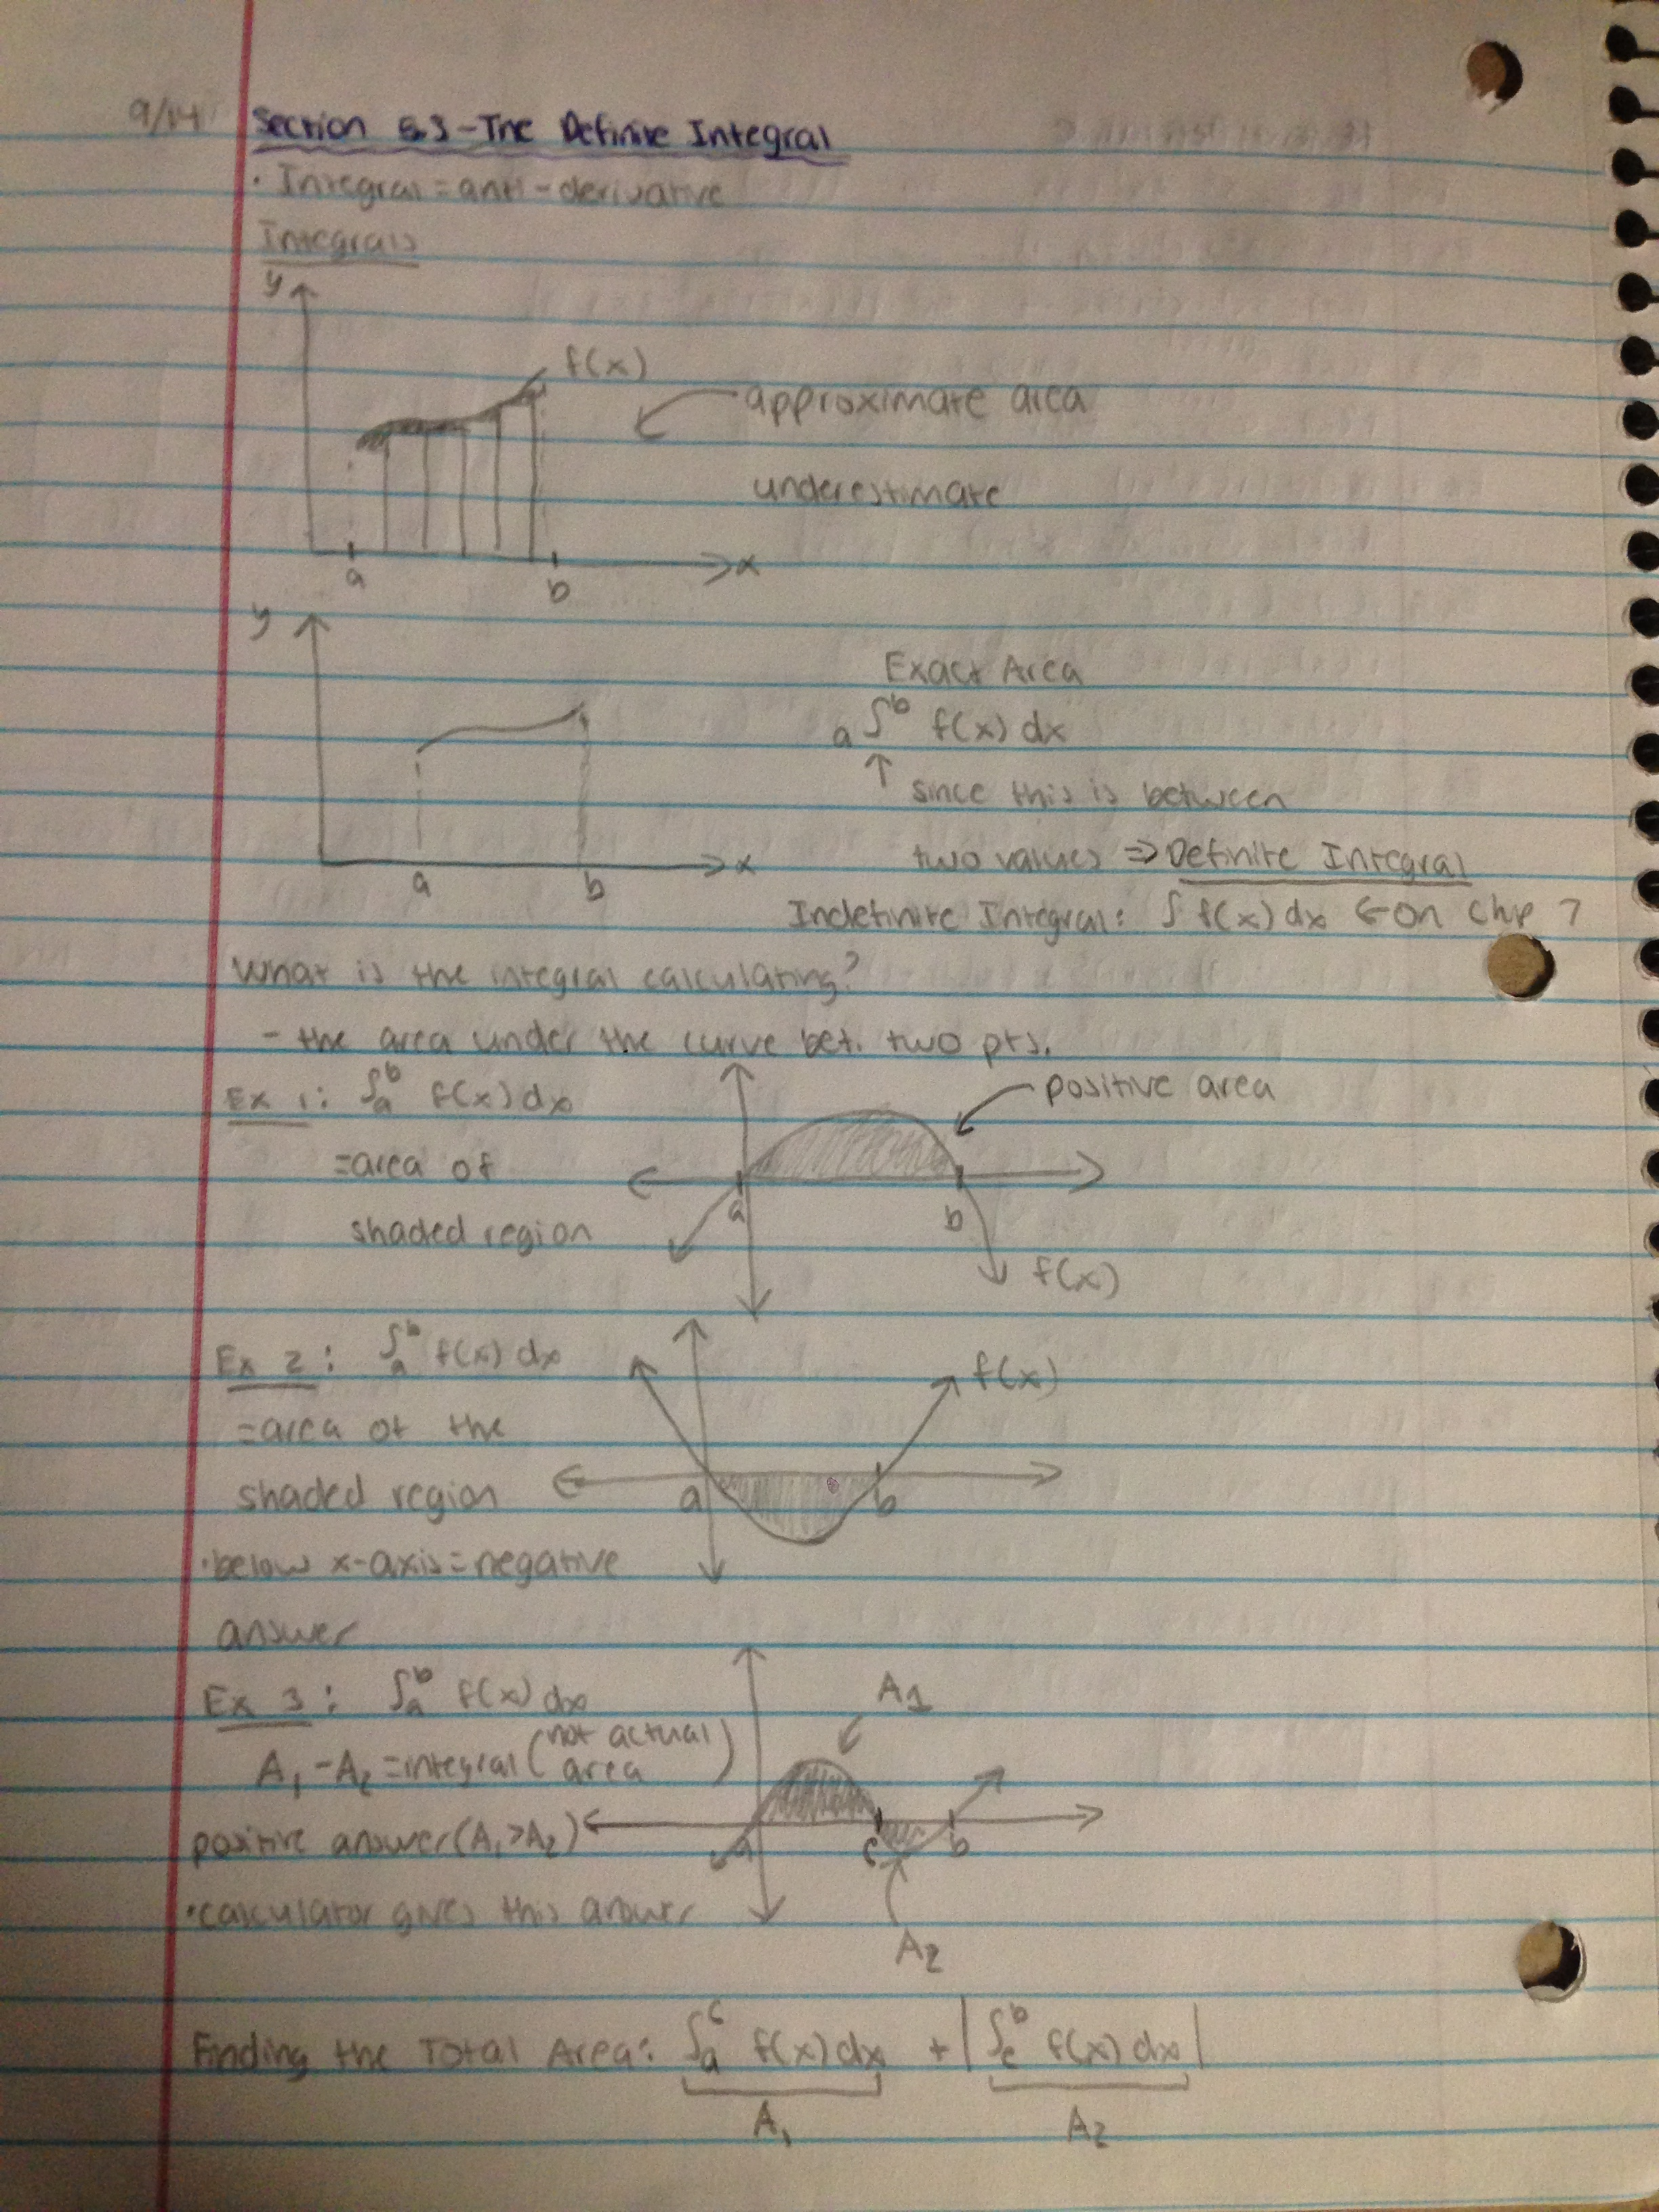 9/14
Section 5.3 - The Definite Integral
· Integral = anti-derivative
Integrals
y
f(x)
approximate area
underestimate
a b x
y
Exact Area
a∫ᵇ f(x) dx
↑ since this is between
two values ⇒ Definite Integral
a b x
Indefinite Integral: ∫ f(x) dx ← on Chp 7
What is the integral calculating?
- the area under the curve bet. two pts.
Ex 1: ∫ₐᵇ f(x) dx
positive area
= area of
shaded region
a b
f(x)
Ex 2: ∫ₐᵇ f(x) dx
f(x)
= area of the
shaded region
a b
· below x-axis = negative
answer
Ex 3: ∫ₐᵇ f(x) dx
A1
A₁ - A₂ = integral (not actual area)
positive answer (A₁ > A₂)
a c b
· calculator gives this answer
A2
Finding the Total Area: ∫ₐᶜ f(x) dx + |∫꜀ᵇ f(x) dx|
A₁ A₂